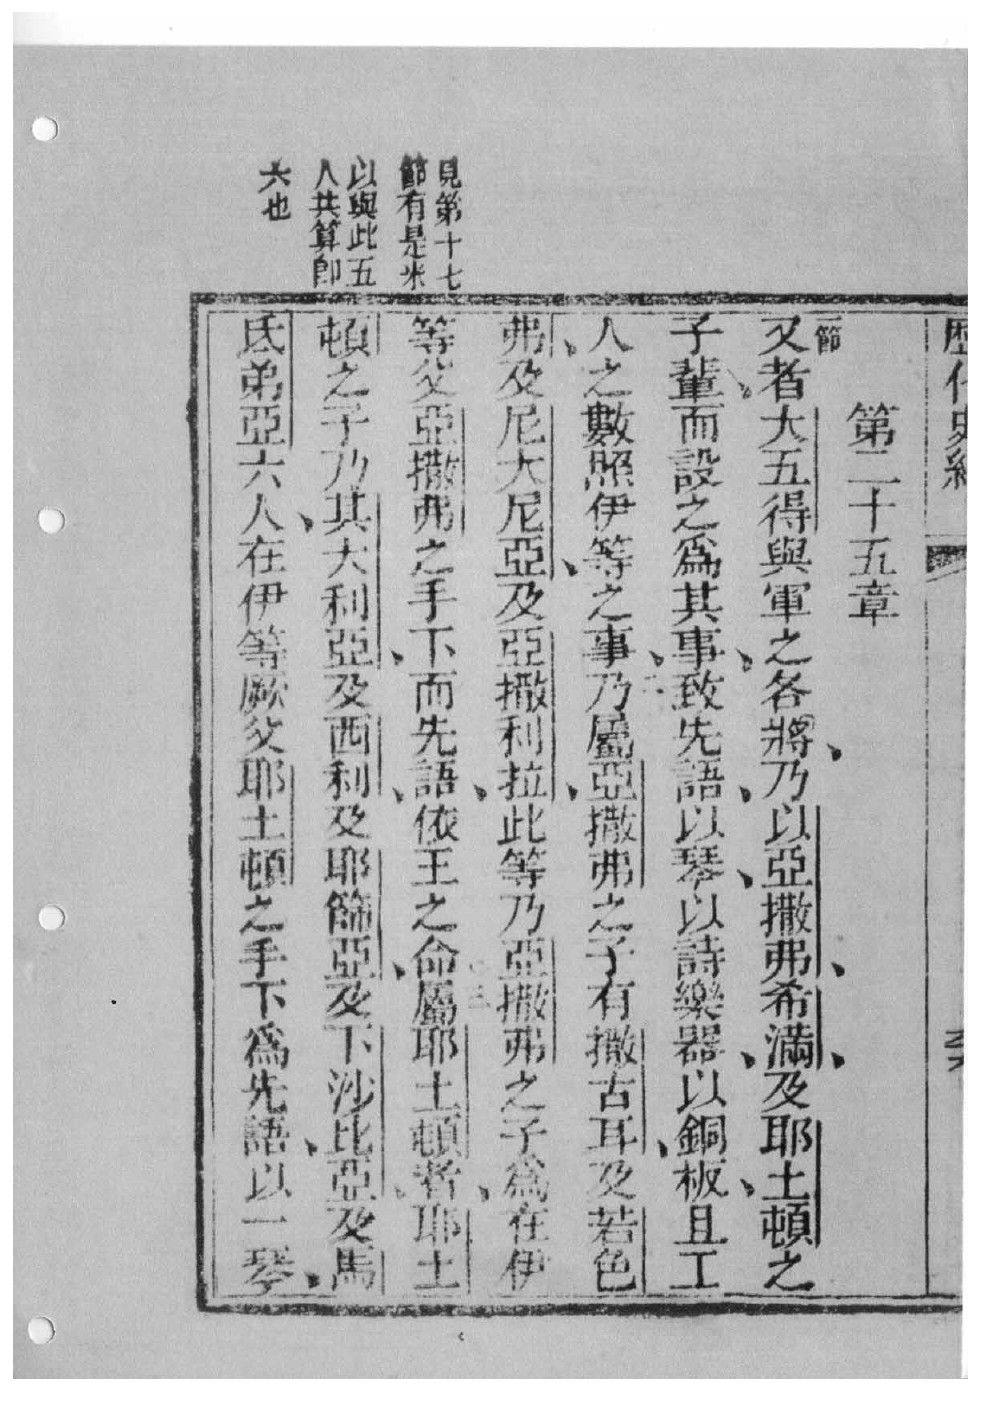 歷代史紀
第二十五章
一節
又者大五得與軍之各將、乃以亞撒弗、希滿、及耶土頓之
子輩、而設之爲其事、致先語、以琴、以詩樂器、以銅板、且工
人之數照伊等之事、乃屬亞撒弗之子有撒古耳、及若色
弗、及尼大尼亞、及亞撒利拉、此等乃亞撒弗之子爲在伊
等父亞撒弗之手下、而先語、依王之命屬耶土頓者、耶土
頓之子乃其大利亞、及西利、及耶篩亞、及下沙比亞、及馬
氐弟亞六人、在伊等厥父耶土頓之手下爲先語、以一琴、
見第十七
節有是米
以與此五
人共算卽
六也